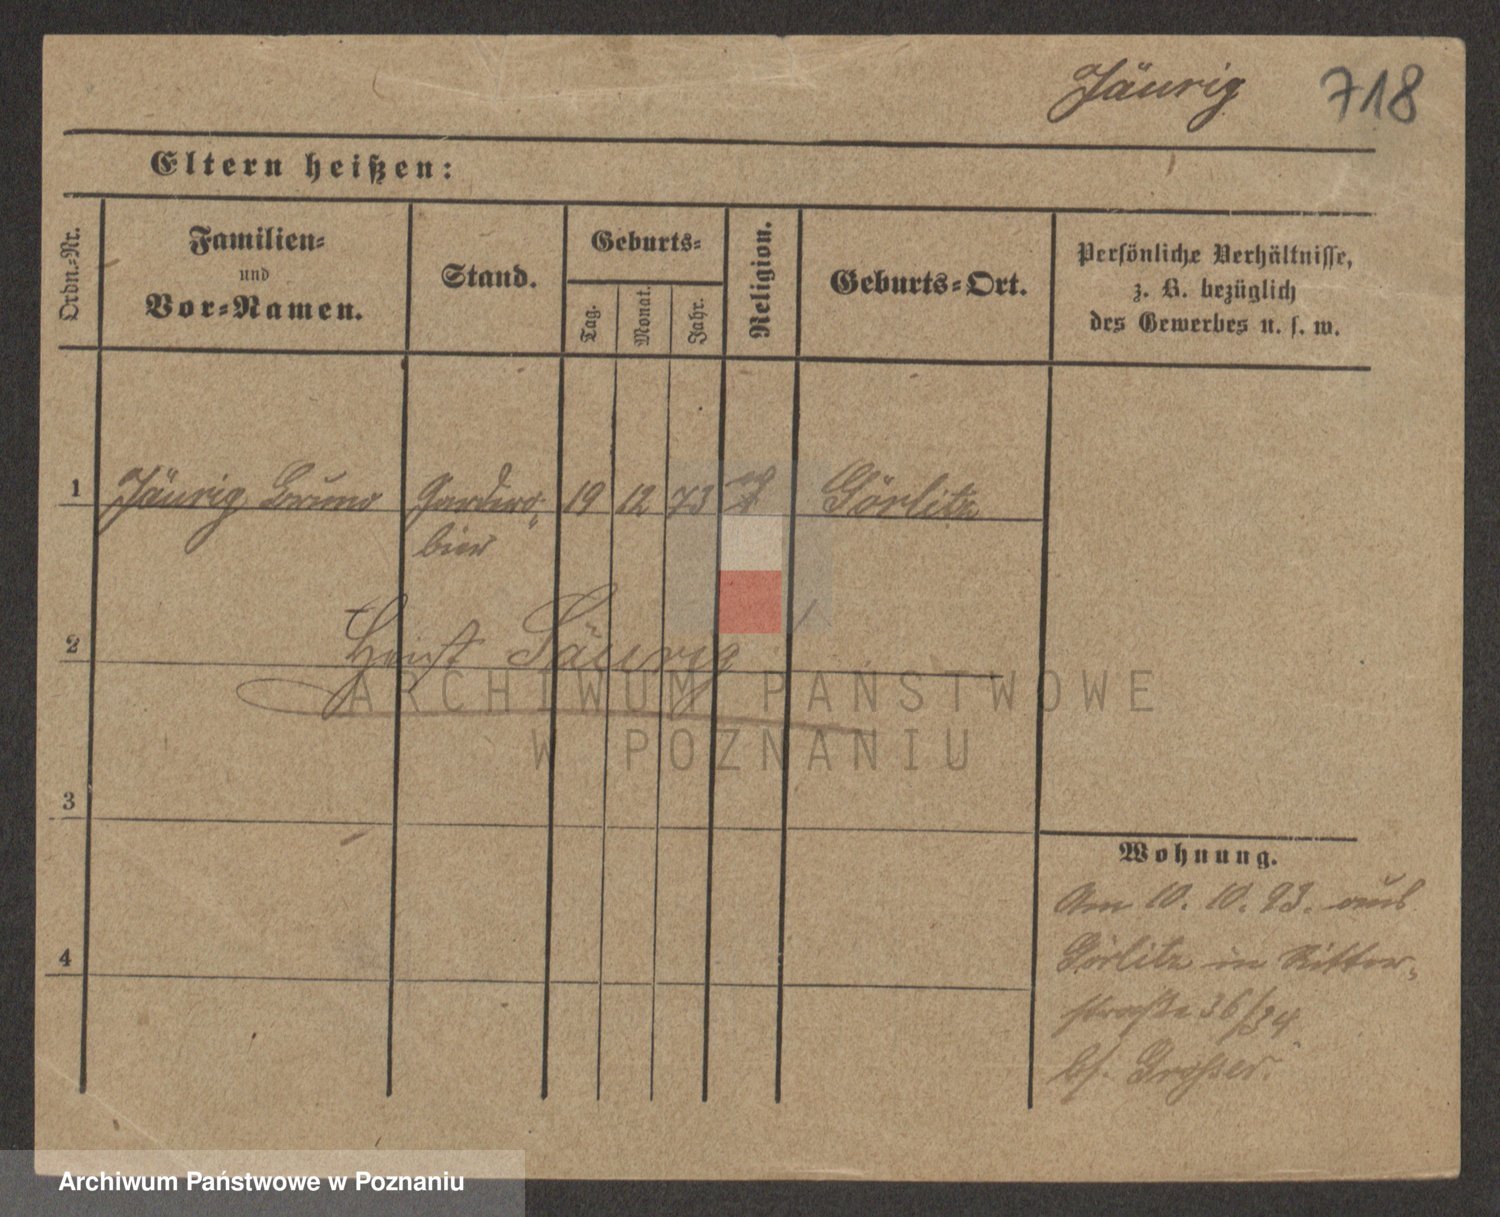 Jäurig 718
Eltern heißen:
Ordn.=Nr.
Familien=
und
Vor=Namen.
Stand.
Geburts=
Tag.
Monat.
Jahr.
Religion.
Geburts=Ort.
Persönliche Verhältnisse,
z. B. bezüglich
des Gewerbes u. s. w.
1 Jäurig Bruno Gardero= 19 12 73 Görlitz
bier
2 Heißt Säurig
ARCHIWUM PAŃSTWOWE
W POZNANIU
3
Wohnung.
Am 10. 10. 93. aus
Görlitz in Ritter=
straße 36/34
bs. Großer.
4
Archiwum Państwowe w Poznaniu